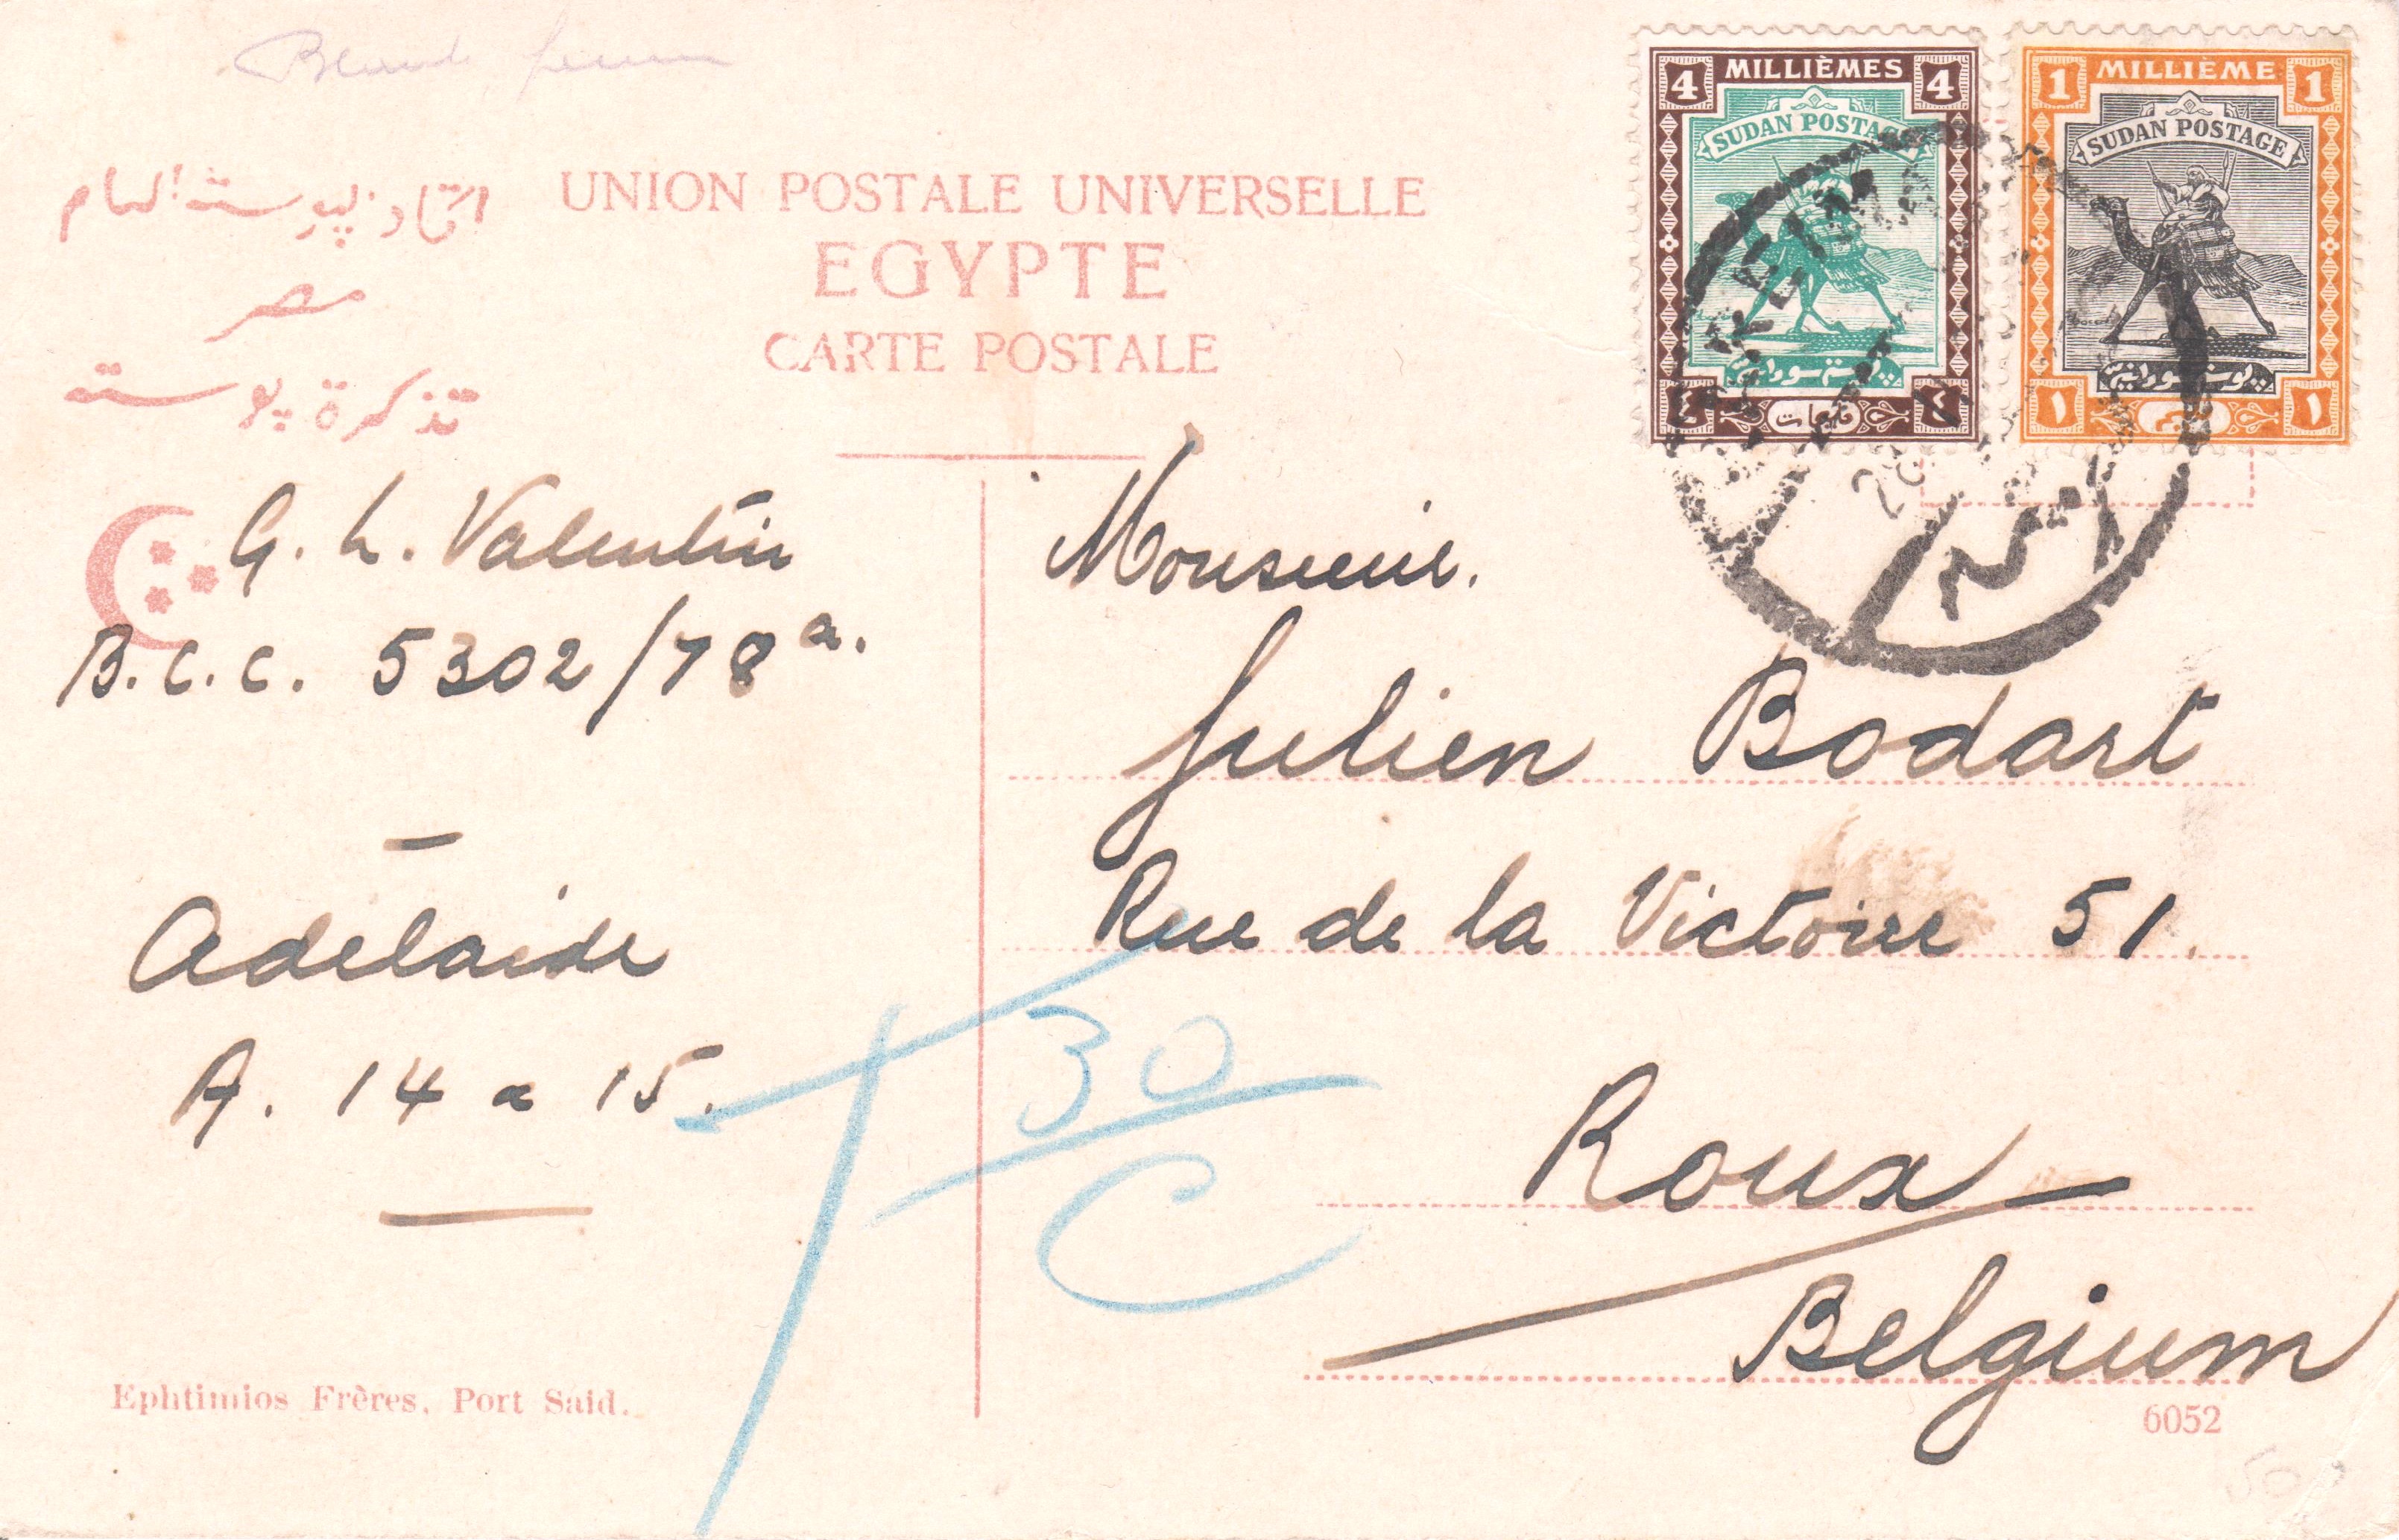 UNION POSTALE UNIVERSELLE
EGYPTE
CARTE POSTALE
اتحاد پوستة العام
مصر
تذكرة پوسته
4 MILLIÈMES 4
SUDAN POSTAGE
پوسته سودانية
٤ مليمات ٤
1 MILLIÈME 1
SUDAN POSTAGE
پوسته سودانية
١ مليم ١
G. L. Valentin
B.C.C. 5302/78a.
Adelaide
A. 14 a 15.
T 30
C
Monsieur.
Julien Bodart
Rue de la Victoire 51.
Roux
Belgium
Ephtimios Frères, Port Said.
6052
50